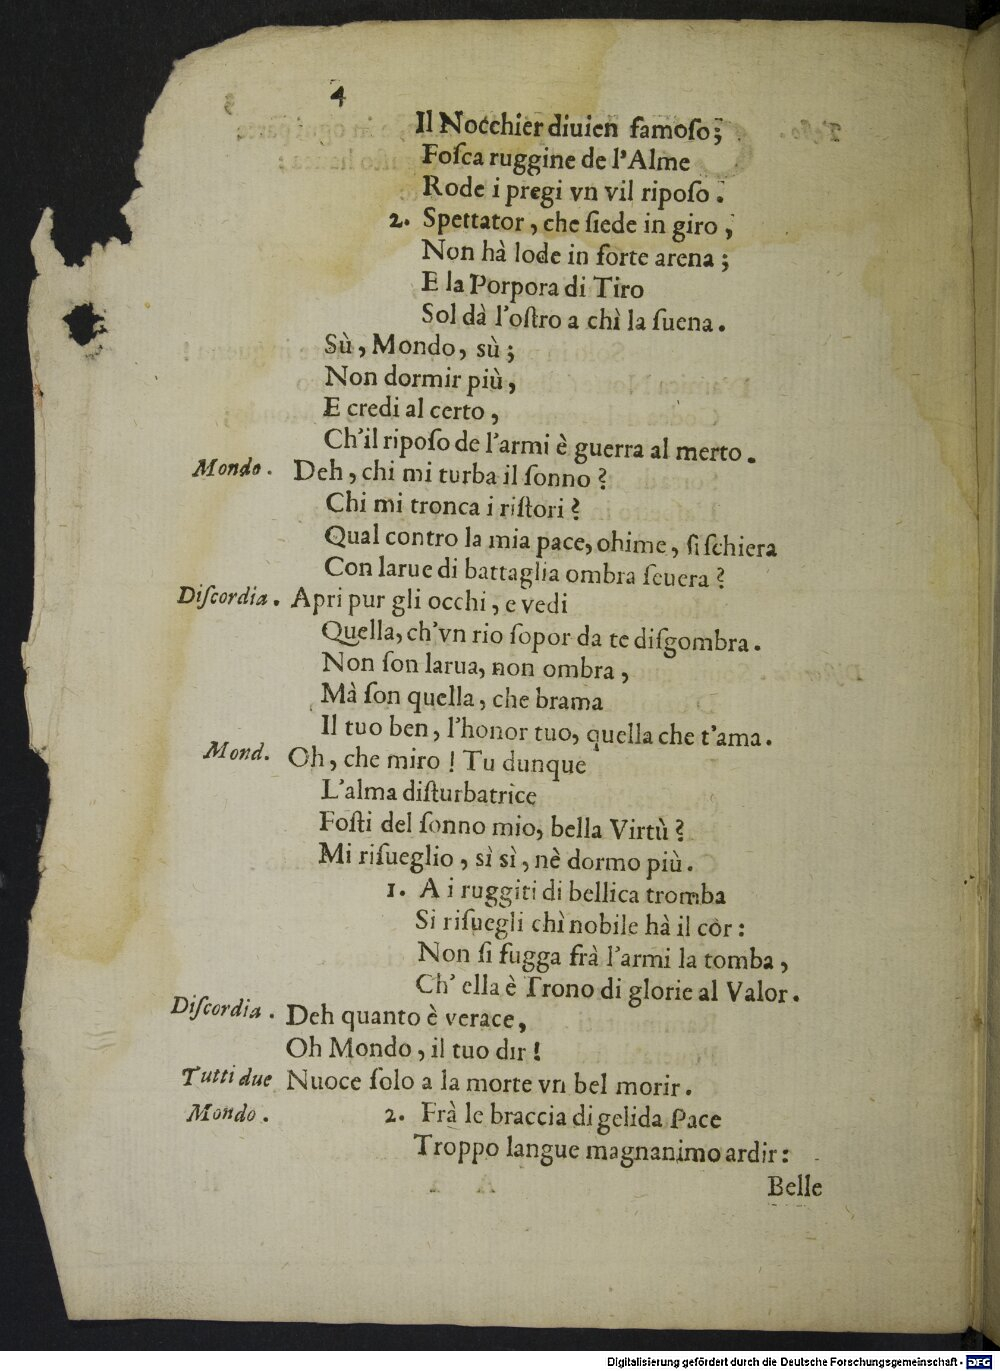 4
Il Nocchier diuien famoſo;
Foſca ruggine de l'Alme
Rode i pregi vn vil ripoſo.
2. Spettator, che ſiede in giro,
Non hà lode in forte arena;
E la Porpora di Tiro
Sol dà l'oſtro a chì la ſuena.
Sù, Mondo, sù;
Non dormir più,
E credi al certo,
Ch'il ripoſo de l'armi è guerra al merto.
Mondo. Deh, chi mi turba il ſonno?
Chi mi tronca i riſtori?
Qual contro la mia pace, ohime, ſi ſchiera
Con larue di battaglia ombra ſeuera?
Diſcordia. Apri pur gli occhi, e vedi
Quella, ch'vn rio ſopor da te diſgombra.
Non ſon larua, non ombra,
Mà ſon quella, che brama
Il tuo ben, l'honor tuo, quella che t'ama.
Mond. Oh, che miro! Tu dunque
L'alma diſturbatrice
Foſti del ſonno mio, bella Virtù?
Mi riſueglio, sì sì, nè dormo più.
1. A i ruggiti di bellica tromba
Si riſuegli chì nobile hà il còr:
Non ſi fugga frà l'armi la tomba,
Ch' ella è Trono di glorie al Valor.
Diſcordia. Deh quanto è verace,
Oh Mondo, il tuo dir!
Tutti due Nuoce ſolo a la morte vn bel morir.
Mondo. 2. Frà le braccia di gelida Pace
Troppo langue magnanimo ardir:
Belle
Digitalisierung gefördert durch die Deutsche Forschungsgemeinschaft - DFG